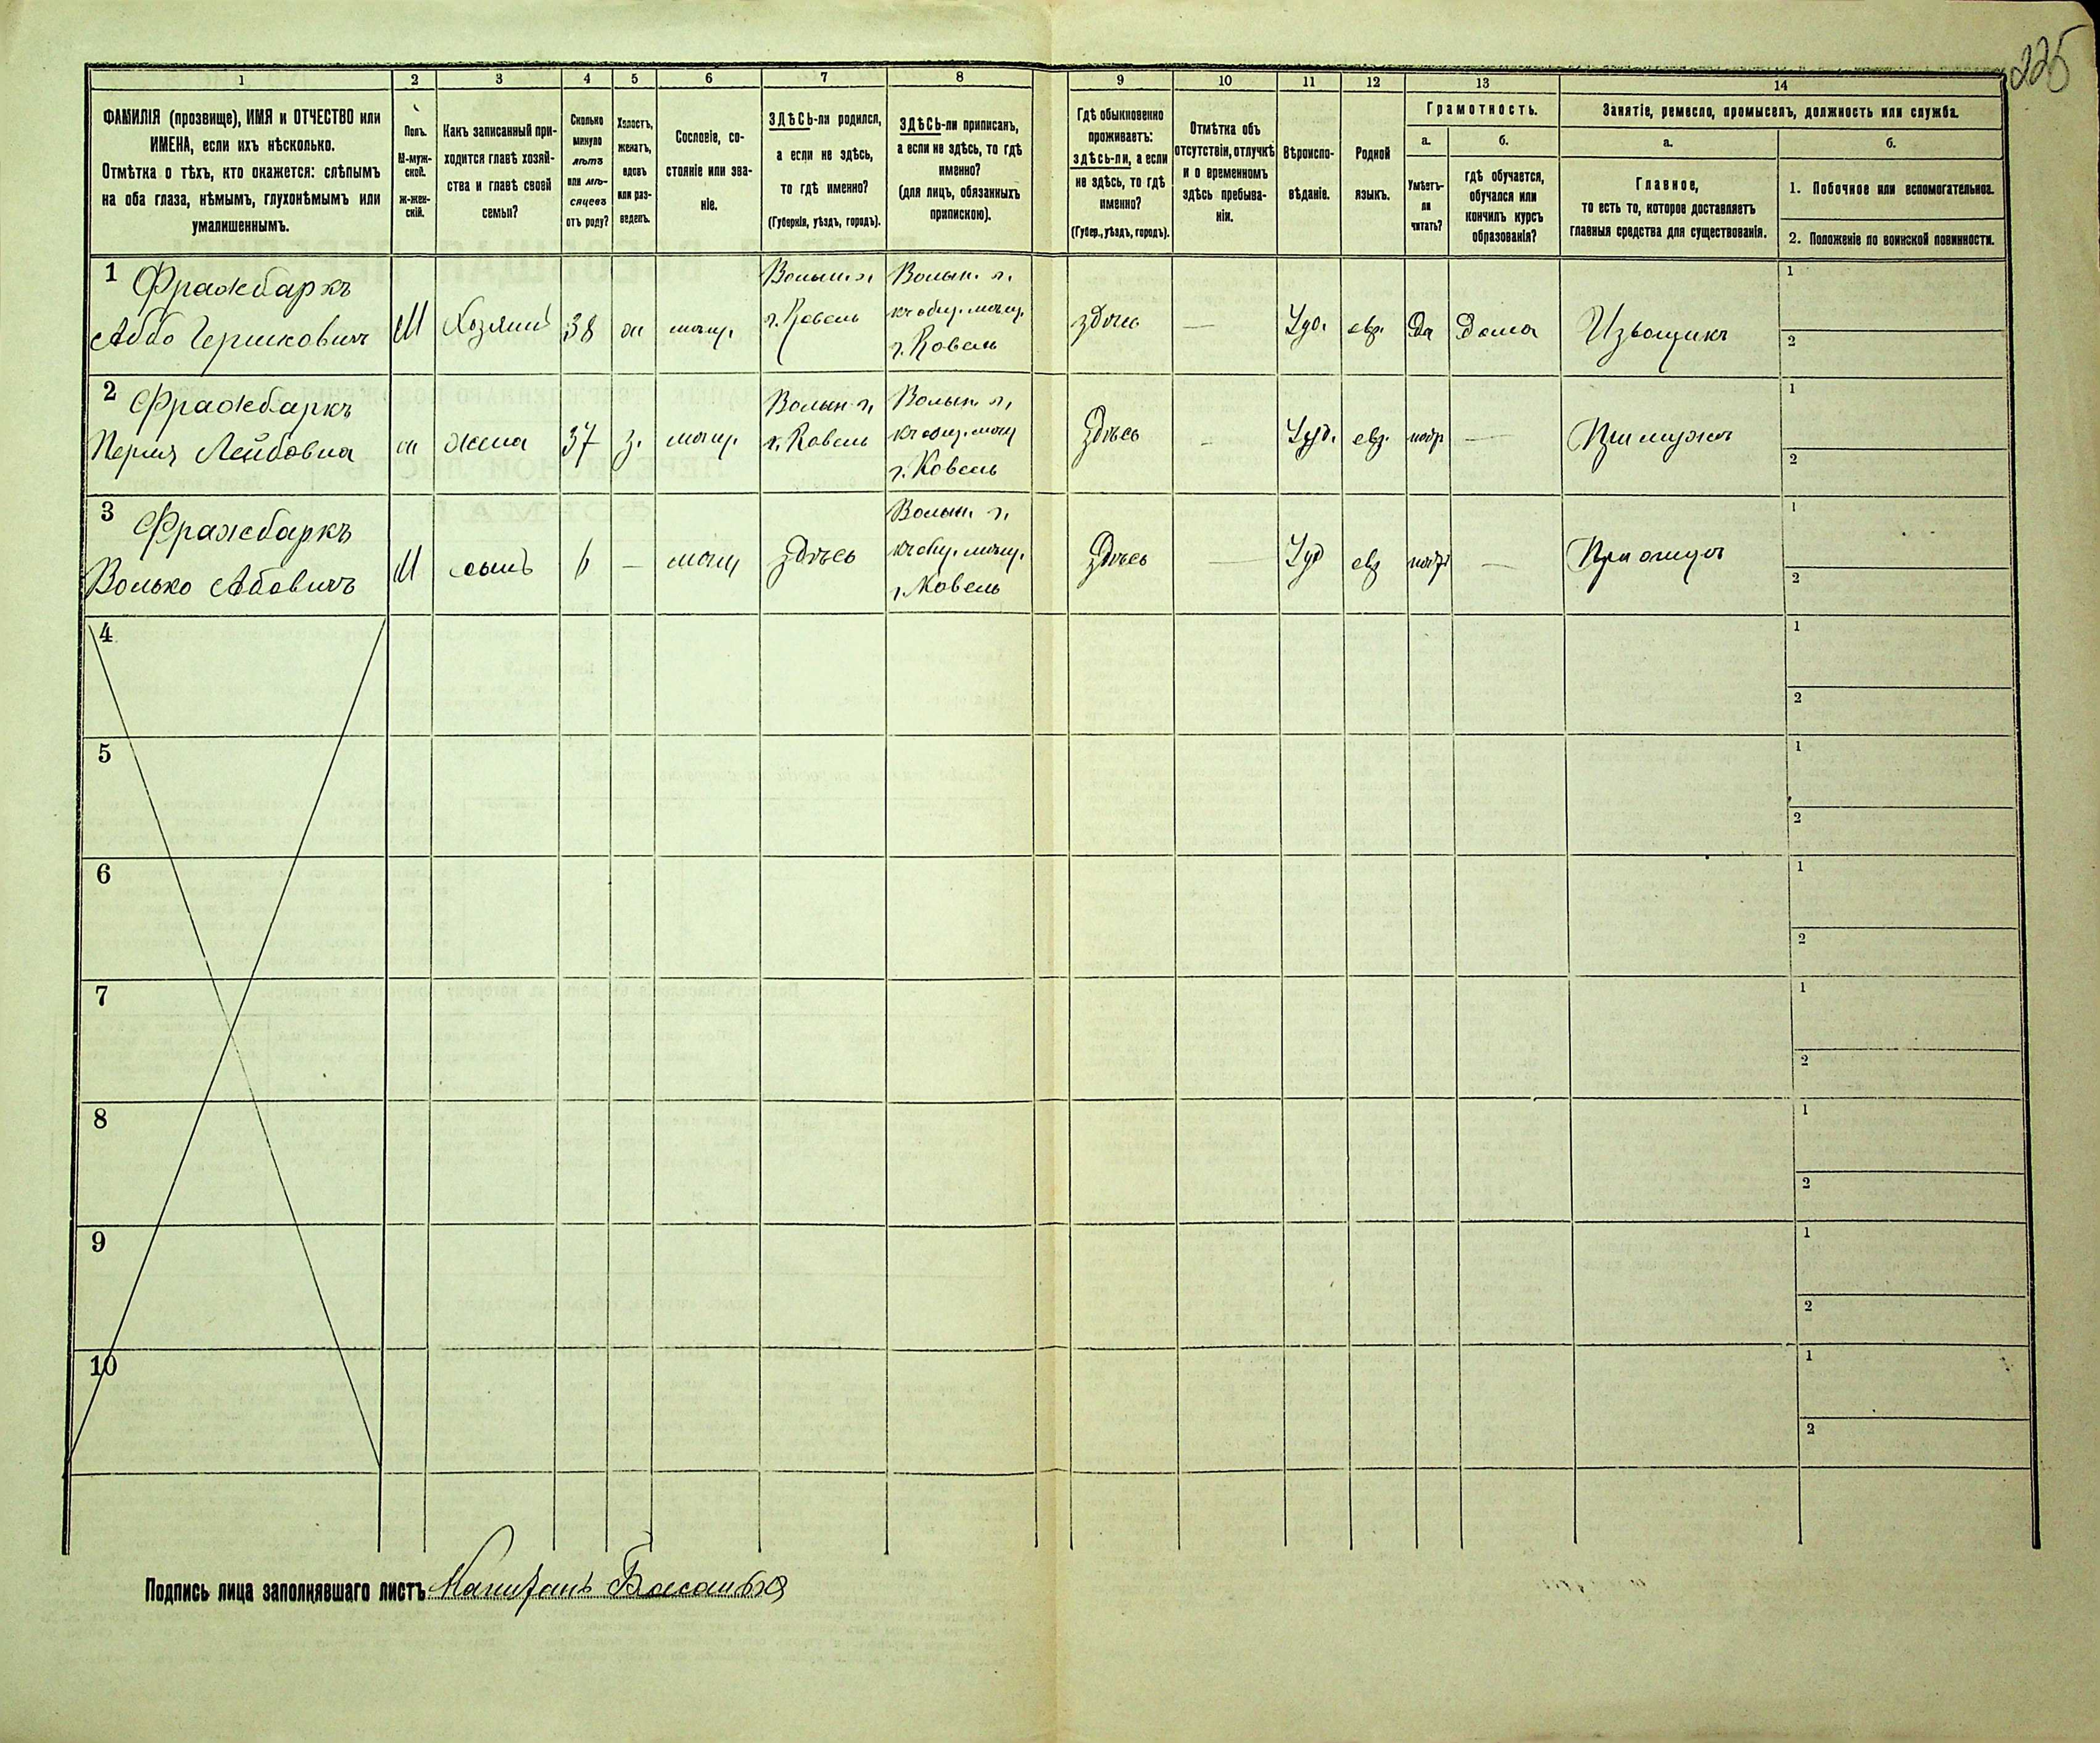 225
1 2 3 4 5 6 7 8 9 10 11 12 13 14
ФАМИЛІЯ (прозвище), ИМЯ и ОТЧЕСТВО или
ИМЕНА, если ихъ нѣсколько.
Отмѣтка о тѣхъ, кто окажется: слѣпымъ
на оба глаза, нѣмымъ, глухонѣмымъ или
умалишеннымъ.
Полъ.
М-муж-
ской.
ж-жен-
скій.
Какъ записанный при-
ходится главѣ хозяй-
ства и главѣ своей
семьи?
Сколько
минуло
лѣтъ
или мѣ-
сяцевъ
отъ роду?
Холостъ,
женатъ,
вдовъ
или раз-
веденъ.
Сословіе, со-
стояніе или зва-
ніе.
ЗДѢСЬ-ли родился,
а если не здѣсь,
то гдѣ именно?
(Губернія, уѣздъ, городъ).
ЗДѢСЬ-ли приписанъ,
а если не здѣсь, то гдѣ
именно?
(для лицъ, обязанныхъ
припискою).
Гдѣ обыкновенно
проживаетъ:
здѣсь-ли, а если
не здѣсь, то гдѣ
именно?
(Губер., уѣздъ, городъ).
Отмѣтка объ
отсутствіи, отлучкѣ
и о временномъ
здѣсь пребыва-
ніи.
Вѣроиспо-
вѣданіе.
Родной
языкъ.
Грамотность.
а.
Умѣетъ-
ли
читать?
б.
гдѣ обучается,
обучался или
кончилъ курсъ
образованія?
Занятіе, ремесло, промыселъ, должность или служба.
а.
Главное,
то есть то, которое доставляетъ
главныя средства для существованія.
б.
1. Побочное или вспомогательное.
2. Положеніе по воинской повинности.
1 Фражбаркъ
Аббо Гершковичъ
М
Хозяинъ
38
ж
мѣщ.
Волын. г.
г. Ковель
Волын. г.
къ общ. мѣщ.
г. Ковель
здѣсь
—
Іуд.
евр.
Да
Дома
Извощикъ
1
2
2 Фражбаркъ
Перля Лейбовна
ж
жена
37
з.
мѣщ.
Волын. г.
г. Ковель
Волын. г.
къ общ. мѣщ
г. Ковель
Здѣсь
-
Іуд.
евр.
—
При мужѣ
1
2
3 Фражбаркъ
Волько Абовичъ
М
сынъ
6
—
мѣщ
здѣсь
Волын. г.
къ общ. мѣщ.
г. Ковель
Здѣсь
—
Іуд
евр
—
При отцѣ
1
2
4
1
2
5
1
2
6
1
2
7
1
2
8
1
2
9
1
2
10
1
2
Подпись лица заполнявшаго листъ